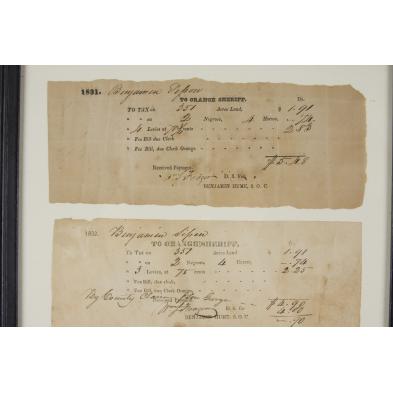 1831. Benjamin
TO ORANGE SHERIFF, Dr.
TO TAX on 351 Acres Land, $ 1.91
" " on 2 Negroes, 4 Horses, .74
" 4 Levies at cents 2.83
" Fee Bill due Clerk
" Fee Bill, due Clerk Orange,
Received Payment, $ 5.48
D. S. For
BENJAMIN HUME, S. O. C.
1832. Benjamin
TO ORANGE SHERIFF,
TO TAX on 351 Acres Land, $ 1.91
" " on 2 Negroes, 4 Horses, .74
" 3 Levies, at 75 cents 2.25
" Fee Bill, due clerk,
" Fee Bill, due Clerk Orange,
By County $ 4.90
D. S. for
BENJAMIN HUME, S. O. C. .70